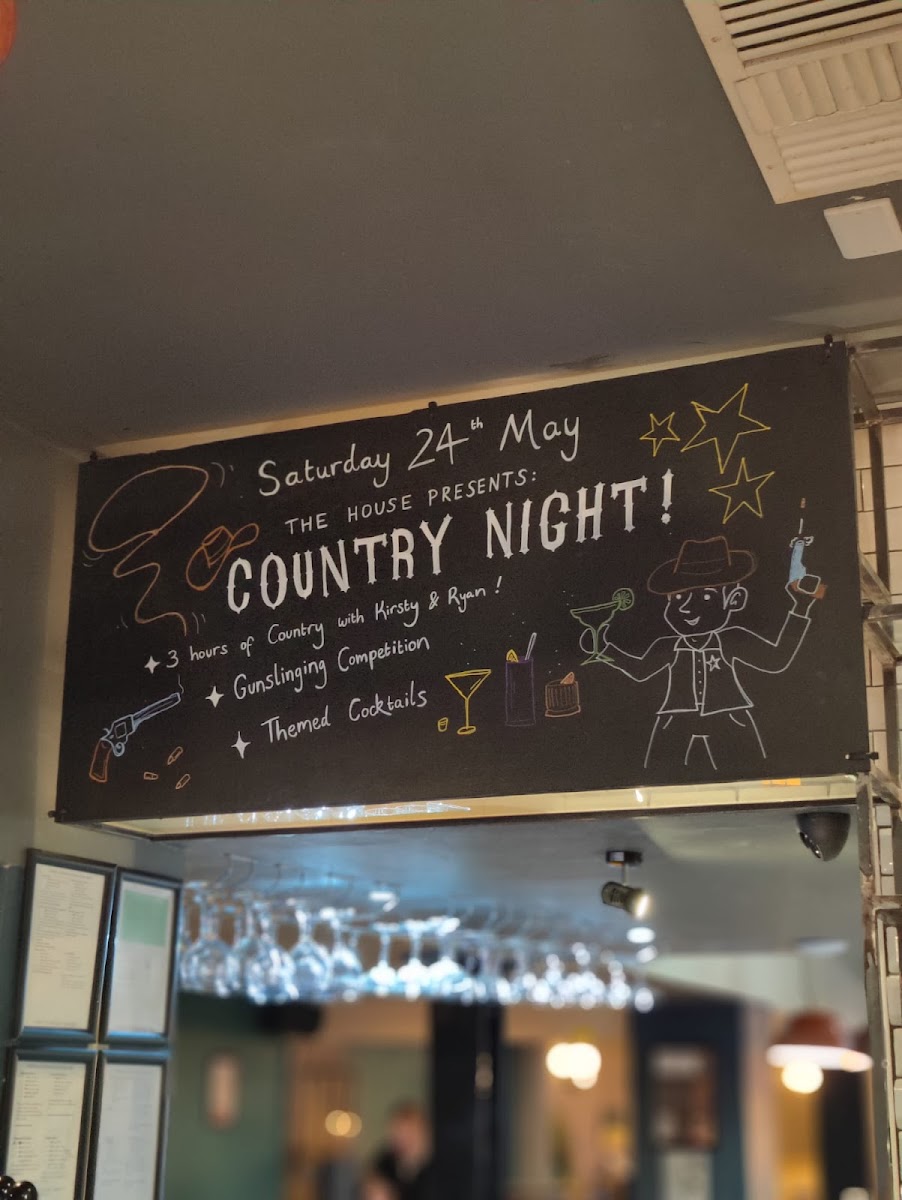 Saturday 24th May
THE HOUSE PRESENTS:
COUNTRY NIGHT!
3 hours of Country with Kirsty & Ryan!
Gunslinging Competition
Themed Cocktails